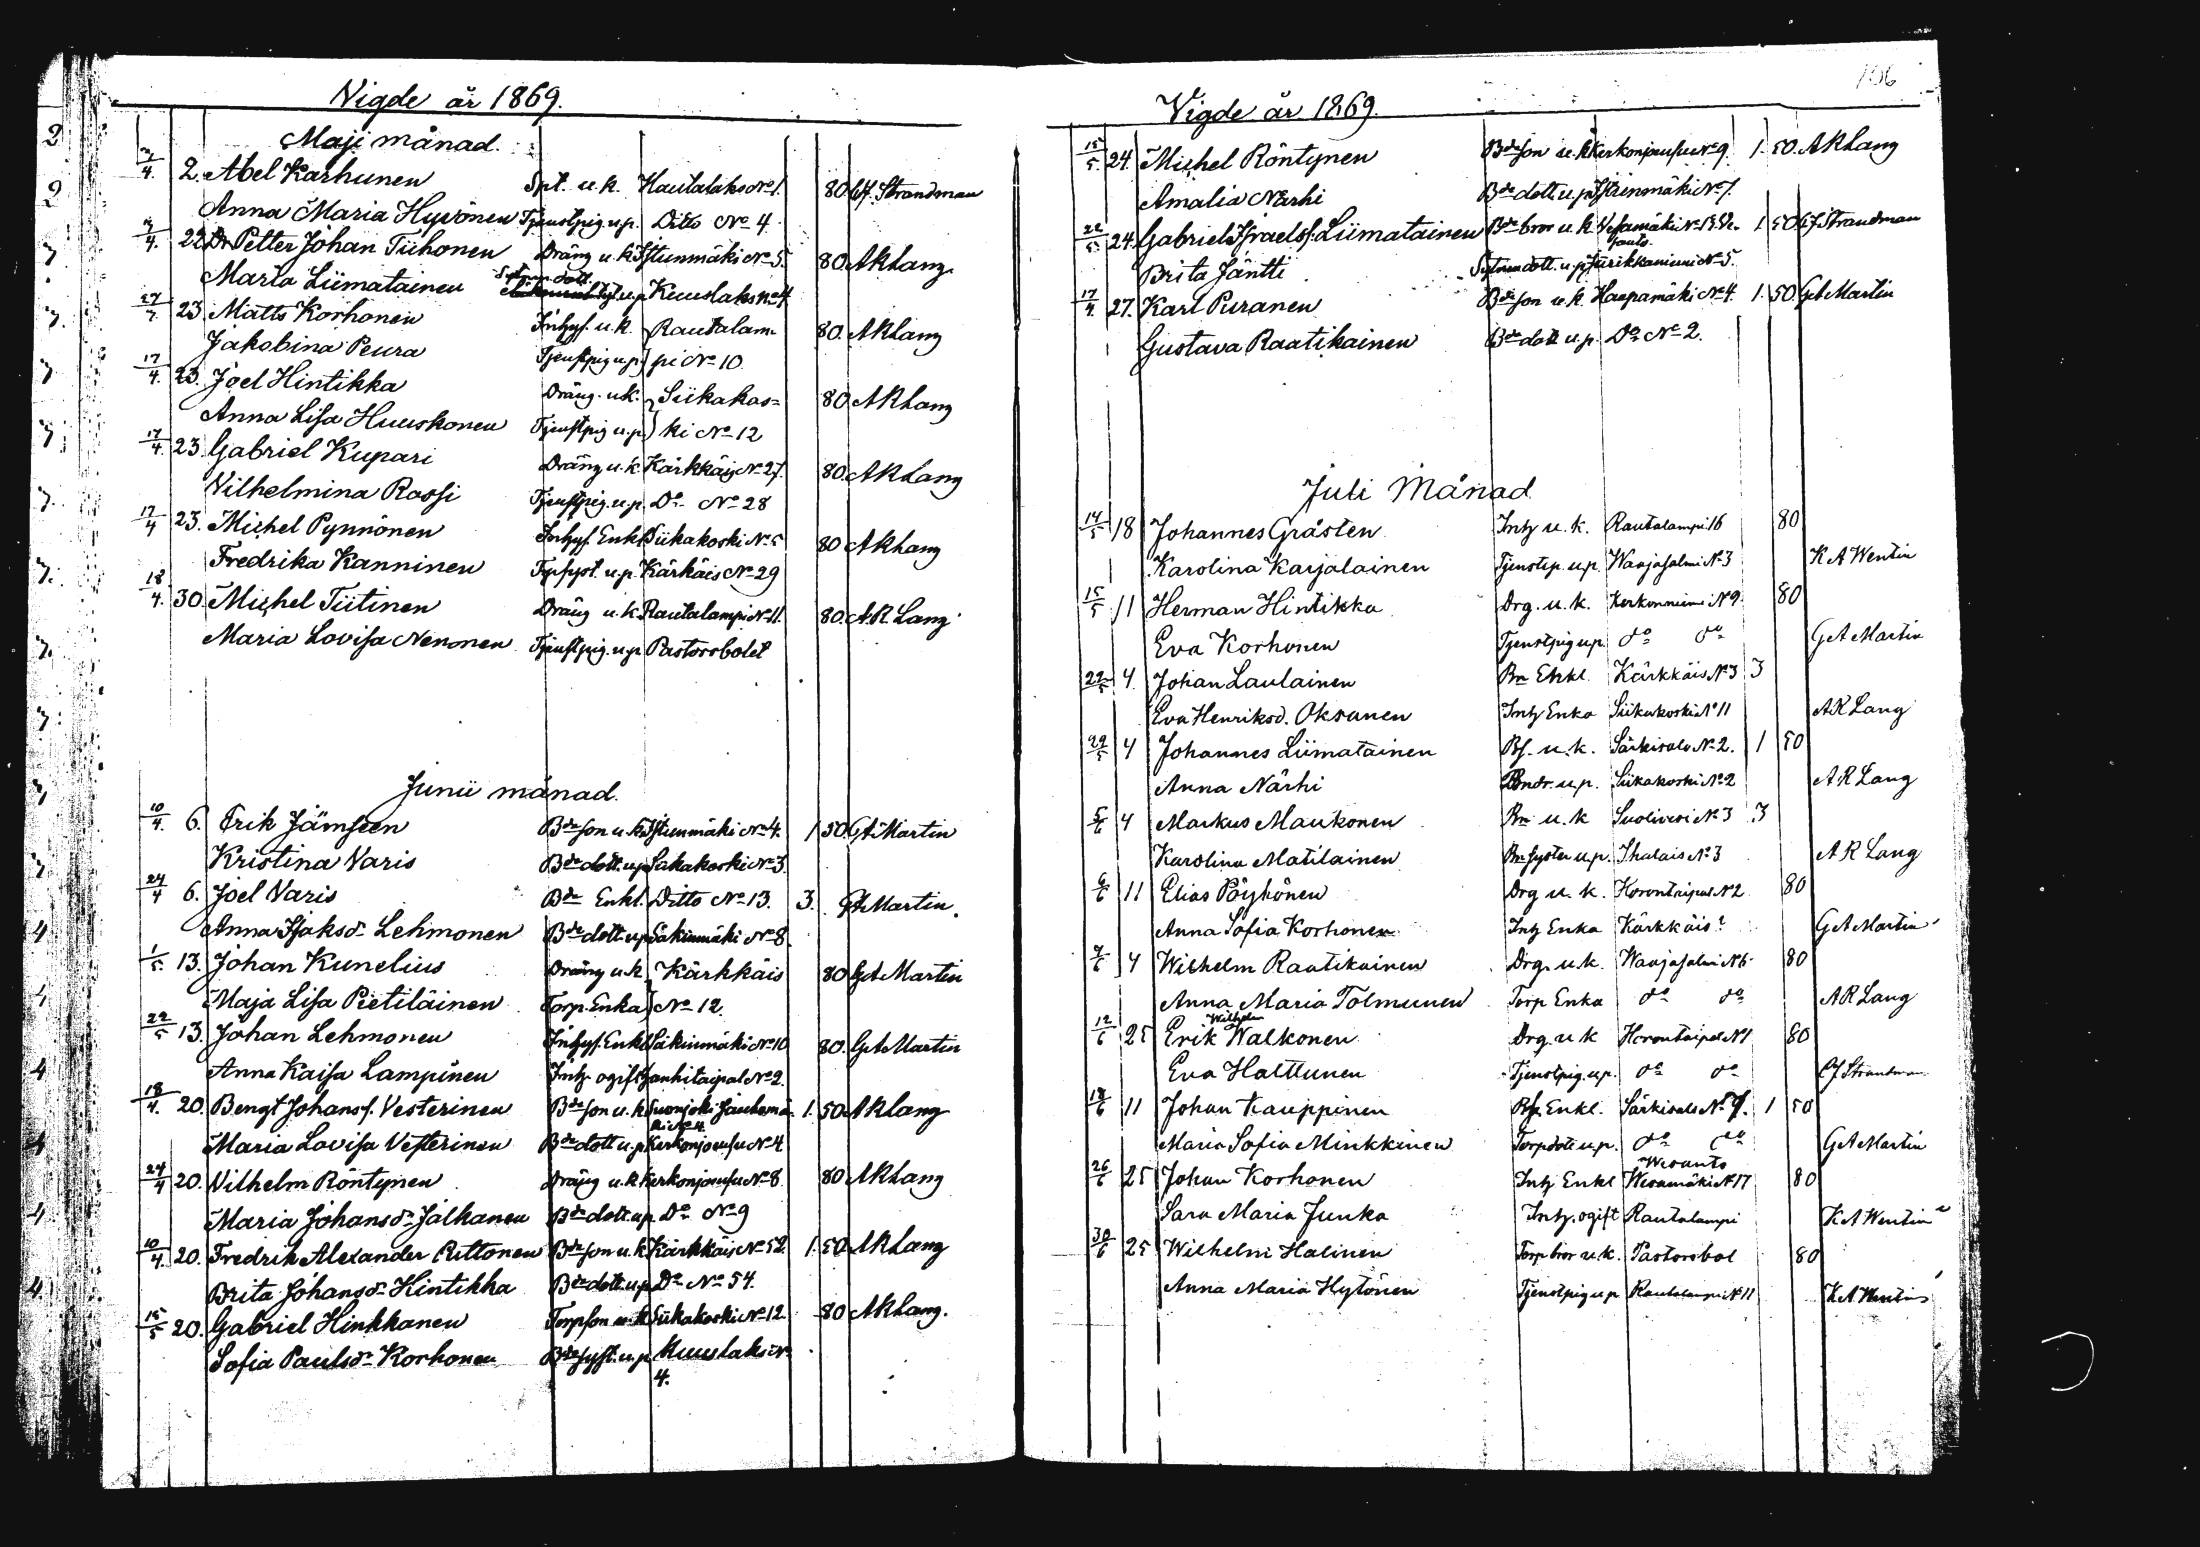 Vigde år 1869.
Maji månad.
4. 2. Abel Karhunen Spt. u.k. Hautalaks No 1. 80 Cf. Strandman
Anna Maria Hyvönen Tjenstpig u.p. Ditto No 4.
4. 22 Petter Johan Tiihonen Dräng u.k. Istunmäki No 5. 80 AR Lang
Maria Liimatainen Sytninr.dott. u.p. Kuuslaks No 4.
23 Matts Korhonen Inhys. u.k. Rautalam- 80. AR Lang
Jakobina Peura Tjenstpig u.p. pi No 10.
17/4. 23. Joel Hintikka Dräng. u.k. Siikakos= 80 AR Lang
Anna Lisa Huuskonen Tjenstpig u.p. ki No 12
17/4. 23. Gabriel Kupari Dräng u.k. Kärkkäis No 27. 80. AR Lang
Vilhelmina Rossi Tjenstpig. u.p. Do No 28
17/4 23. Michel Pynnönen Inhys. Enkl Siikakoski No 5 80 AR Lang
Fredrika Kanninen u.p. Kärkäis No 29
18/4. 30. Michel Tiitinen Dräng u.k. Rautalampi No 11. 80. AR Lang
Maria Lovisa Nenonen Tjenstpig. u.p Pastorsbolet
Junii månad.
10/4. 6. Erik Jämseen Bde son u.k. Istunmäki No 4. 1 50. GA Martin
Kristina Varis Bde dott. u.p. Siikakoski No 3.
24/4 6. Joel Varis Bde Enkl. Ditto No 13. 3. GA Martin.
Anna Isaksdr Lehmonen Bde dott. u.p. Säkinmäki No 8.
1/5. 13. Johan Kunelius Dräng u.k. Kärkkäis 80 GA Martin
Maja Lisa Pietiläinen Torp. Enka No 12.
22/5 13. Johan Lehmonen Inhys. Enkl Säkinmäki No 10 80. GA Martin
Anna Kaisa Lampinen Inhy. ogift Hankitaipal No 2.
18/4. 20. Bengt Johans. Vesterinen Bde son u.k. Suonjoki Jauhomä- 1. 50 AR Lang
ki No 4.
Maria Lovisa Vesterinen Bde dott u.p Kerkonjoensu No 4
24/4 20. Vilhelm Röntynen Dräng u.k. Kerkonjoensu No 8 80 AR Lang
Maria Johansdr Jalkanen Bde dott. u.p. Do No 9
10/4. 20. Fredrik Alexander Rittonen Bde son u.k. Kärkkäis No 52 1. 50 AR Lang
Brita Johansdr Hintikka Bde dott. u.p. Do No 54.
15/5 20. Gabriel Hinkkanen Torpson u.k. Siikakoski No 12. 80 AR Lang.
Sofia Paulsdr Korhonen Bde syst. u.p. Kuuslaks No
4.
Vigde år 1869.
106
15/5. 24. Michel Röntynen Bde son u.k. Kerkonjoensu No 9. 1. 50. AR Lang
Amalia Närhi Bde dott. u.p. Istunmäki No 1.
22/5 24. Gabriel Israelss. Liimatainen Bde bror u.k. Vesamäki No 13. 1. 50 Cf Strandman
Brita Jäntti Sytninr.dott. u.p. No 5.
17/4 27. Karl Puranen Bde son u.k. Haapamäki No 4. 1. 50 GA Martin
Gustava Raatikainen Bde dott u.p. Do No 2.
Juli Månad
14/5 18 Johannes Gråsten Inhy u.k. Rautalampi 16 80
Karolina Karjalainen Tjenstp. u.p. Waajasalmi No 3 K A Wentin
15/5 11 Herman Hintikka Drg. u.k. Kerkonniemi No 9. 80
Eva Korhonen Tjenstpig u.p. do do G A Martin
22/5 4. Johan Laulainen Bn Enkl. Kärkkäis No 3 3
Eva Henriksd. Oksanen Inhy Enka Siikakoski No 11 AR Lang
29/5 4 Johannes Liimatainen Bs. u.k. Särkisalo No 2. 1 50
Anna Närhi Bndr. u.p. Siikakoski No 2 AR Lang
5/6 4 Markus Maukonen Bn u.k Suolivesi No 3 3
Karolina Matilainen Bn syster u.p. Ihalais No 3 A R Lang
6/6 11 Elias Pöyhönen Drg u.k. Horontaipal No 2 80
Anna Sofia Korhonen Inhy Enka Kärkkäis ? G A Martin
7/6 4 Wilhelm Raatikainen Drg. u.k. Waajasalmi No 6 80
Anna Maria Tolmunen Torp Enka do do AR Lang
Wilhelm
12/6 25 Erik Walkonen Drg. u.k Horontaipal No 1 80
Eva Halttunen Tjenstpig. u.p. do do Cf Strandman
18/6 11 Johan Kauppinen Enkl. Särkisalo No 9. 1 50
Maria Sofia Minkkinen Torpdott u.p. do do G A Martin
Wesanto
26/6 25 Johan Korhonen Inhy Enkl Wesamäki No 17 80
Sara Maria Junka Inhy. ogift Rautalampi K A Wentin
30/6 25 Wilhelm Halinen Torp bror u.k. Pastorsbol 80
Anna Maria Hytönen Tjenstpig u.p Rautalampi No 11 K A Wentin